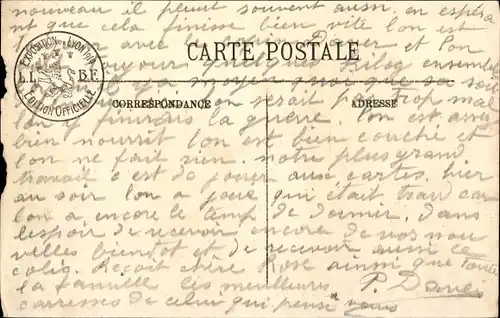 nouveau il pleut souvent aussi. en espérant
que cela finisse bien vite lon est
avec
CARTE POSTALE
EXPOSITION LYON 1914
L.I. B.F.
EDITION OFFICIELLE
toujour quelques kilog ensemble
il y a moyen
CORRESPONDANCE
ADRESSE
lon serait pas trop mal
lon y finirais la guerre. lon est assez
bien nourrit lon est bien couché et
lon ne fait rien. notre plus grand
travail c'est de jouer aux cartes. hier
au soir lon a joué qui était tard car
lon a encore le temp de dormir. dans
lespoir de recevoir encore de vos nou
velles bientot et de recevoir aussi la
colis. Reçoit chère Rose ainsi que toute
la famille les meilleurs
caresses de celui qui pense à vous
P.